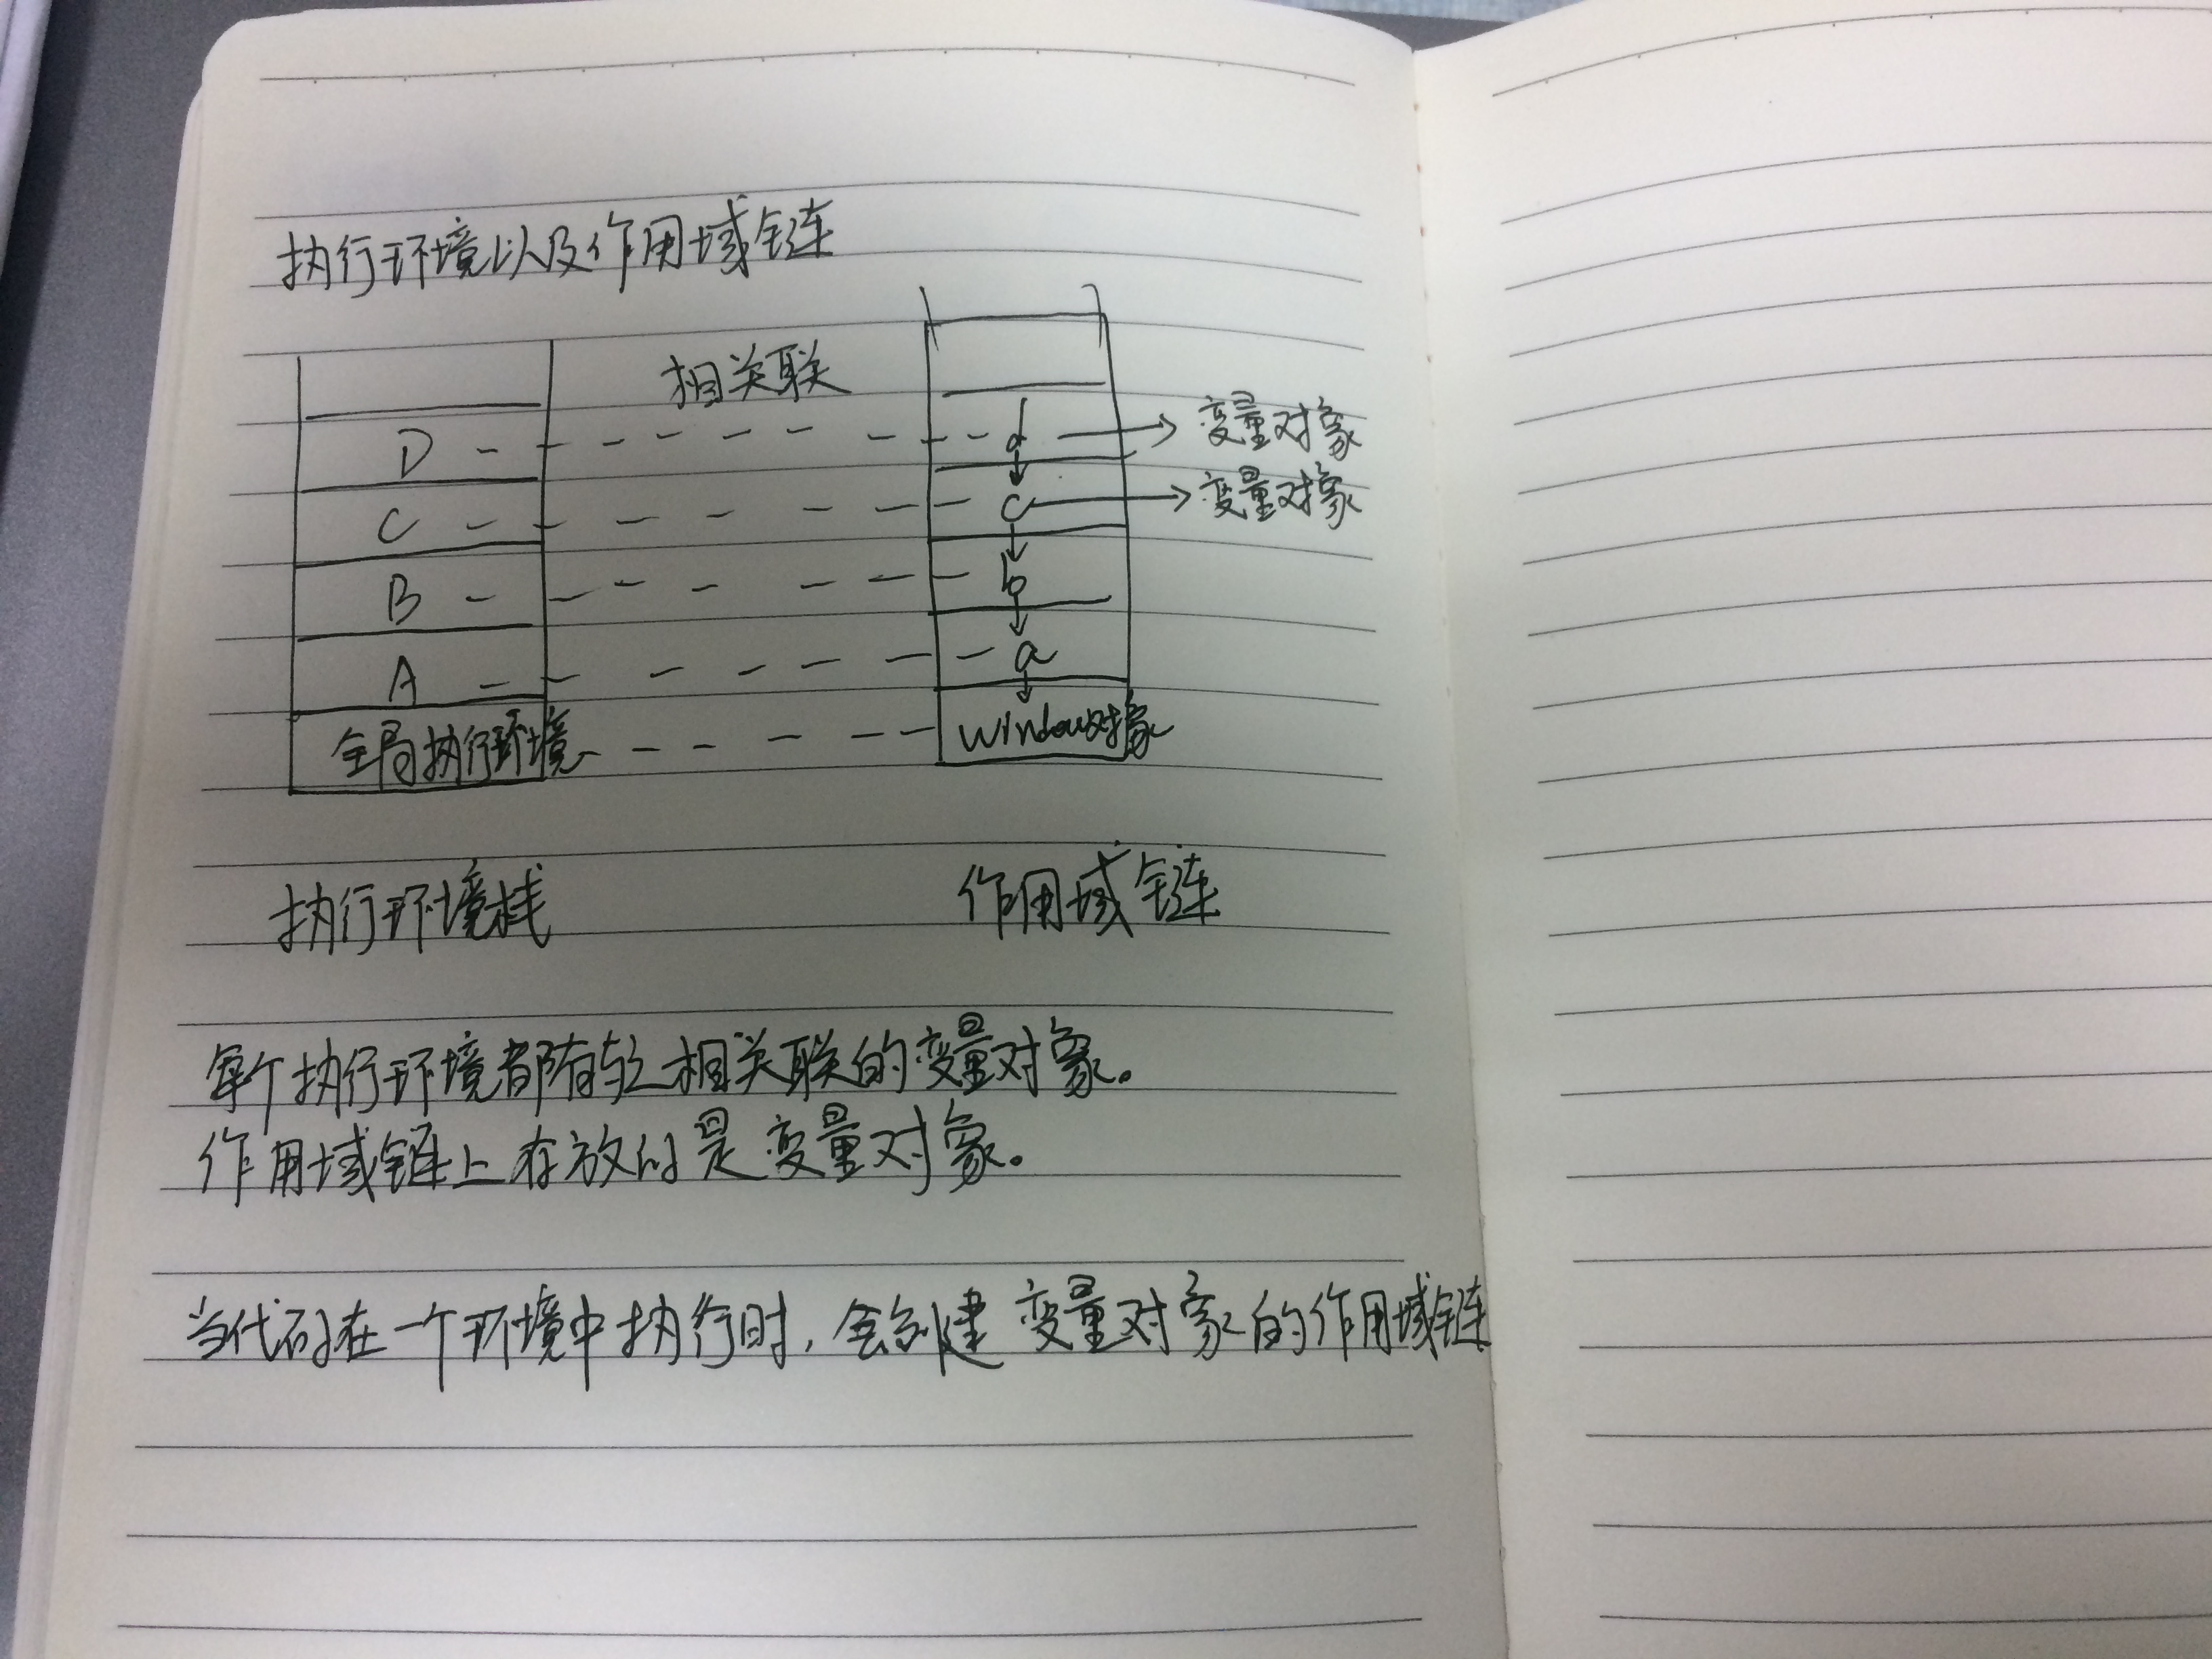 执行环境以及作用域链
相关联
D d → 变量对象
C c → 变量对象
B b
A a
全局执行环境 window对象
执行环境栈 作用域链
每个执行环境都有与之相关联的变量对象。
作用域链上存放的是变量对象。
当代码在一个环境中执行时，会创建 变量对象的作用域链